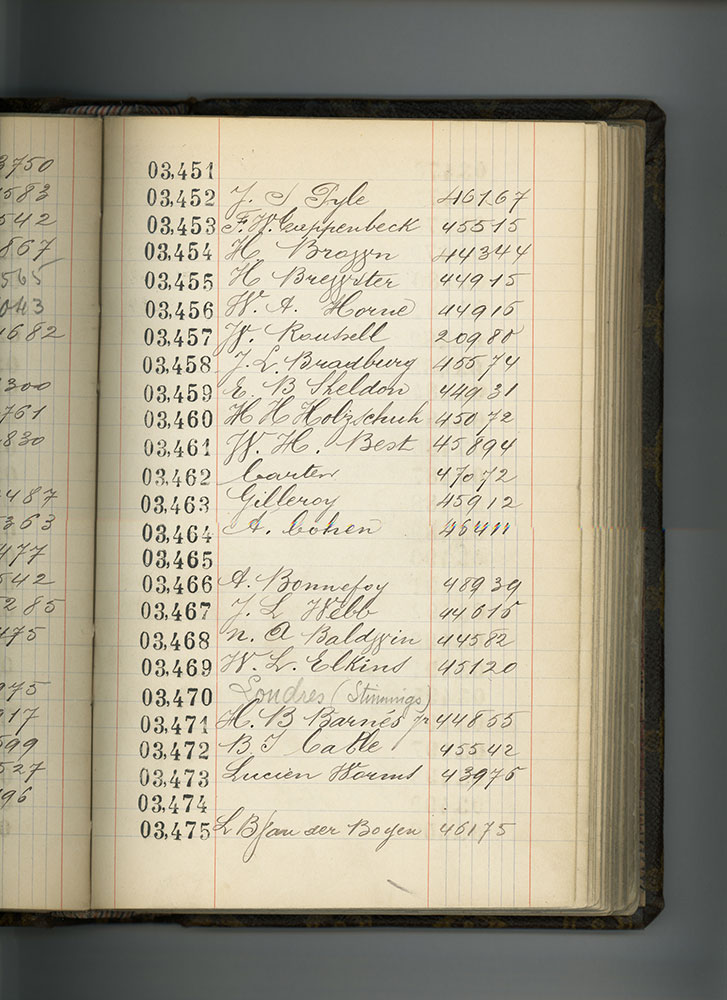 3750
1583
542
867
565
043
1682
300
761
830
487
363
477
542
285
475
975
917
599
527
96
03,451
03,452 J. S Pyle 46167
03,453 F. W. Cuppenbeck 45515
03,454 H Brown 44344
03,455 H Brewster 44915
03,456 W. A. Horne 44915
03,457 W. Roussell 20980
03,458 J. L. Bradbury 45574
03,459 E. B Sheldon 44931
03,460 H H Holzschuh 45072
03,461 W. H. Best 45894
03,462 Carter 47072
03,463 Gilleroy 45912
03,464 A. Cohen
03,465
03,466 A. Bonnefoy 48939
03,467 J. L Webb 44615
03,468 N. A Baldwin 44582
03,469 W. L. Elkins 45120
03,470 Londres (Stimmings)
03,471 H. B Barnes Jr 44855
03,472 B. I Cable 45542
03,473 Lucien Worms 43975
03,474
03,475 L B Van der Boyen 46175